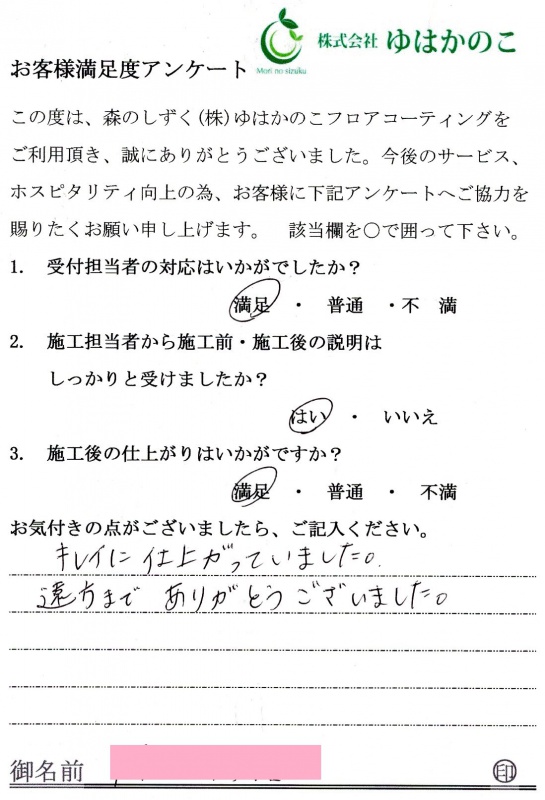 株式会社 ゆはかのこ
Mori no sizuku
お客様満足度アンケート
この度は、森のしずく(株)ゆはかのこフロアコーティングを
ご利用頂き、誠にありがとうございました。今後のサービス、
ホスピタリティ向上の為、お客様に下記アンケートへご協力を
賜りたくお願い申し上げます。 該当欄を〇で囲って下さい。
1. 受付担当者の対応はいかがでしたか？
満足 ・ 普通 ・不 満
2. 施工担当者から施工前・施工後の説明は
しっかりと受けましたか？
はい ・ いいえ
3. 施工後の仕上がりはいかがですか？
満足 ・ 普通 ・ 不満
お気付きの点がございましたら、ご記入ください。
キレイに仕上がっていました。
遠方まで ありがとうございました。
御名前 印